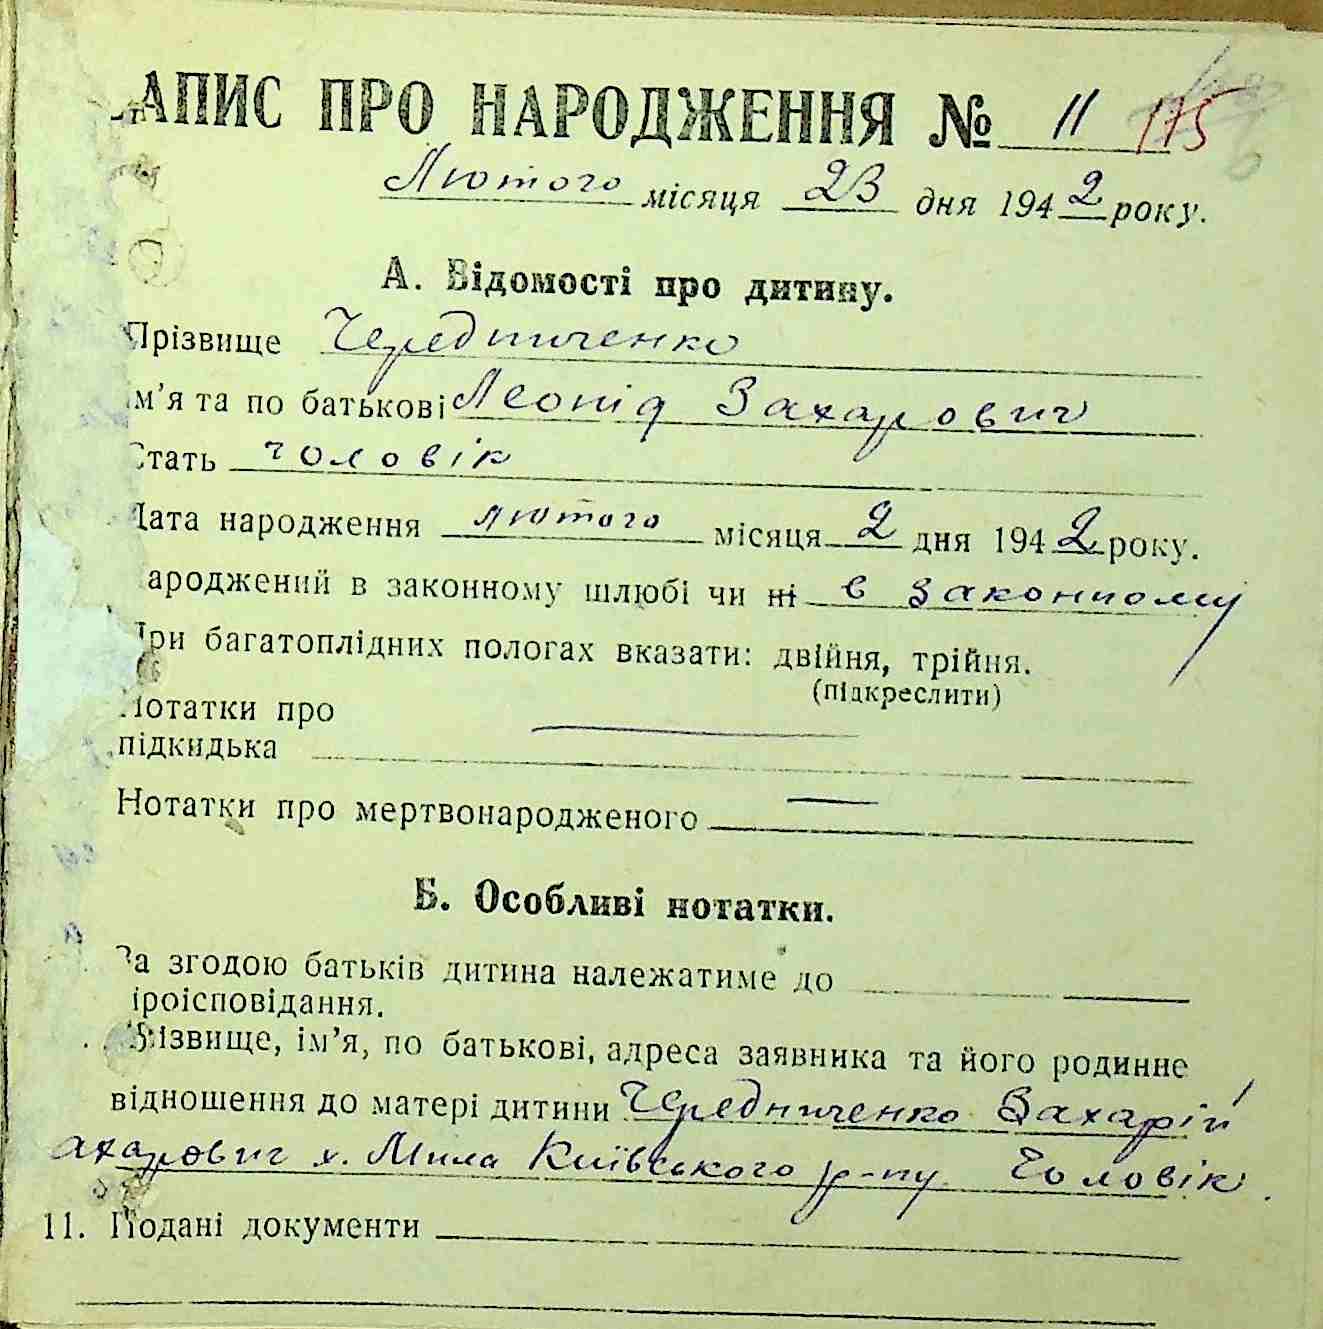 АПИС ПРО НАРОДЖЕННЯ № 11 175
Лютого місяця 23 дня 1942 року.
А. Відомості про дитину.
Прізвище Чередниченко
м'я та по батькові Леонід Захарович
Стать чоловік
Дата народження лютого місяця 2 дня 1942 року.
ароджений в законному шлюбі чи ні в законному
При багатоплідних пологах вказати: двійня, трійня.
(підкреслити)
Нотатки про
підкидька
Нотатки про мертвонародженого
Б. Особливі нотатки.
За згодою батьків дитина належатиме до
іроісповідання.
Прізвище, ім'я, по батькові, адреса заявника та його родинне
відношення до матері дитини Чередниченко Захарій
ахарович х. Мила Київського р-ну Чоловік.
11. Подані документи